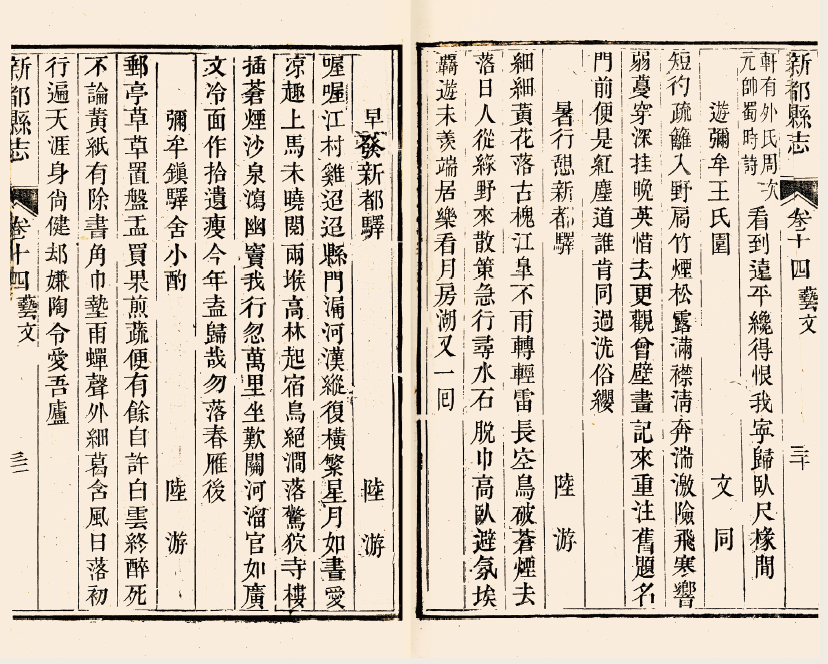 新都縣志 卷十四 藝文 三十
軒有外氏周次
元帥蜀時詩
看到遠平纔得恨我寧歸臥尺椽間
遊彌牟王氏園 文同
短彴疏籬入野扃竹煙松露滿襟淸奔湍激險飛寒響
弱蔓穿深挂晚英惜去更觀曾壁畫記來重注舊題名
門前便是紅塵道誰肯同過洗俗纓
暑行憩新都驛 陸游
細細黃花落古槐江臯不雨轉輕雷長空鳥破蒼煙去
落日人從綠野來散策急行尋水石脫巾高臥避氛埃
羈遊未羡端居樂看月房湖又一回
早發新都驛 陸游
喔喔江村雞迢迢縣門漏河漢縱復橫繁星月如晝愛
凉趣上馬未曉閱兩堠高林起宿鳥絕澗落驚狖寺樓
插蒼煙沙泉瀉幽竇我行忽萬里坐歎關河溜官如廣
文冷面作拾遺瘦今年盍歸哉勿落春雁後
彌牟鎭驛舍小酌 陸游
郵亭草草置盤盂買果煎蔬便有餘自許白雲終醉死
不論黃紙有除書角巾墊雨蟬聲外細葛含風日落初
行遍天涯身尙健却嫌陶令愛吾廬
新都縣志 卷十四 藝文